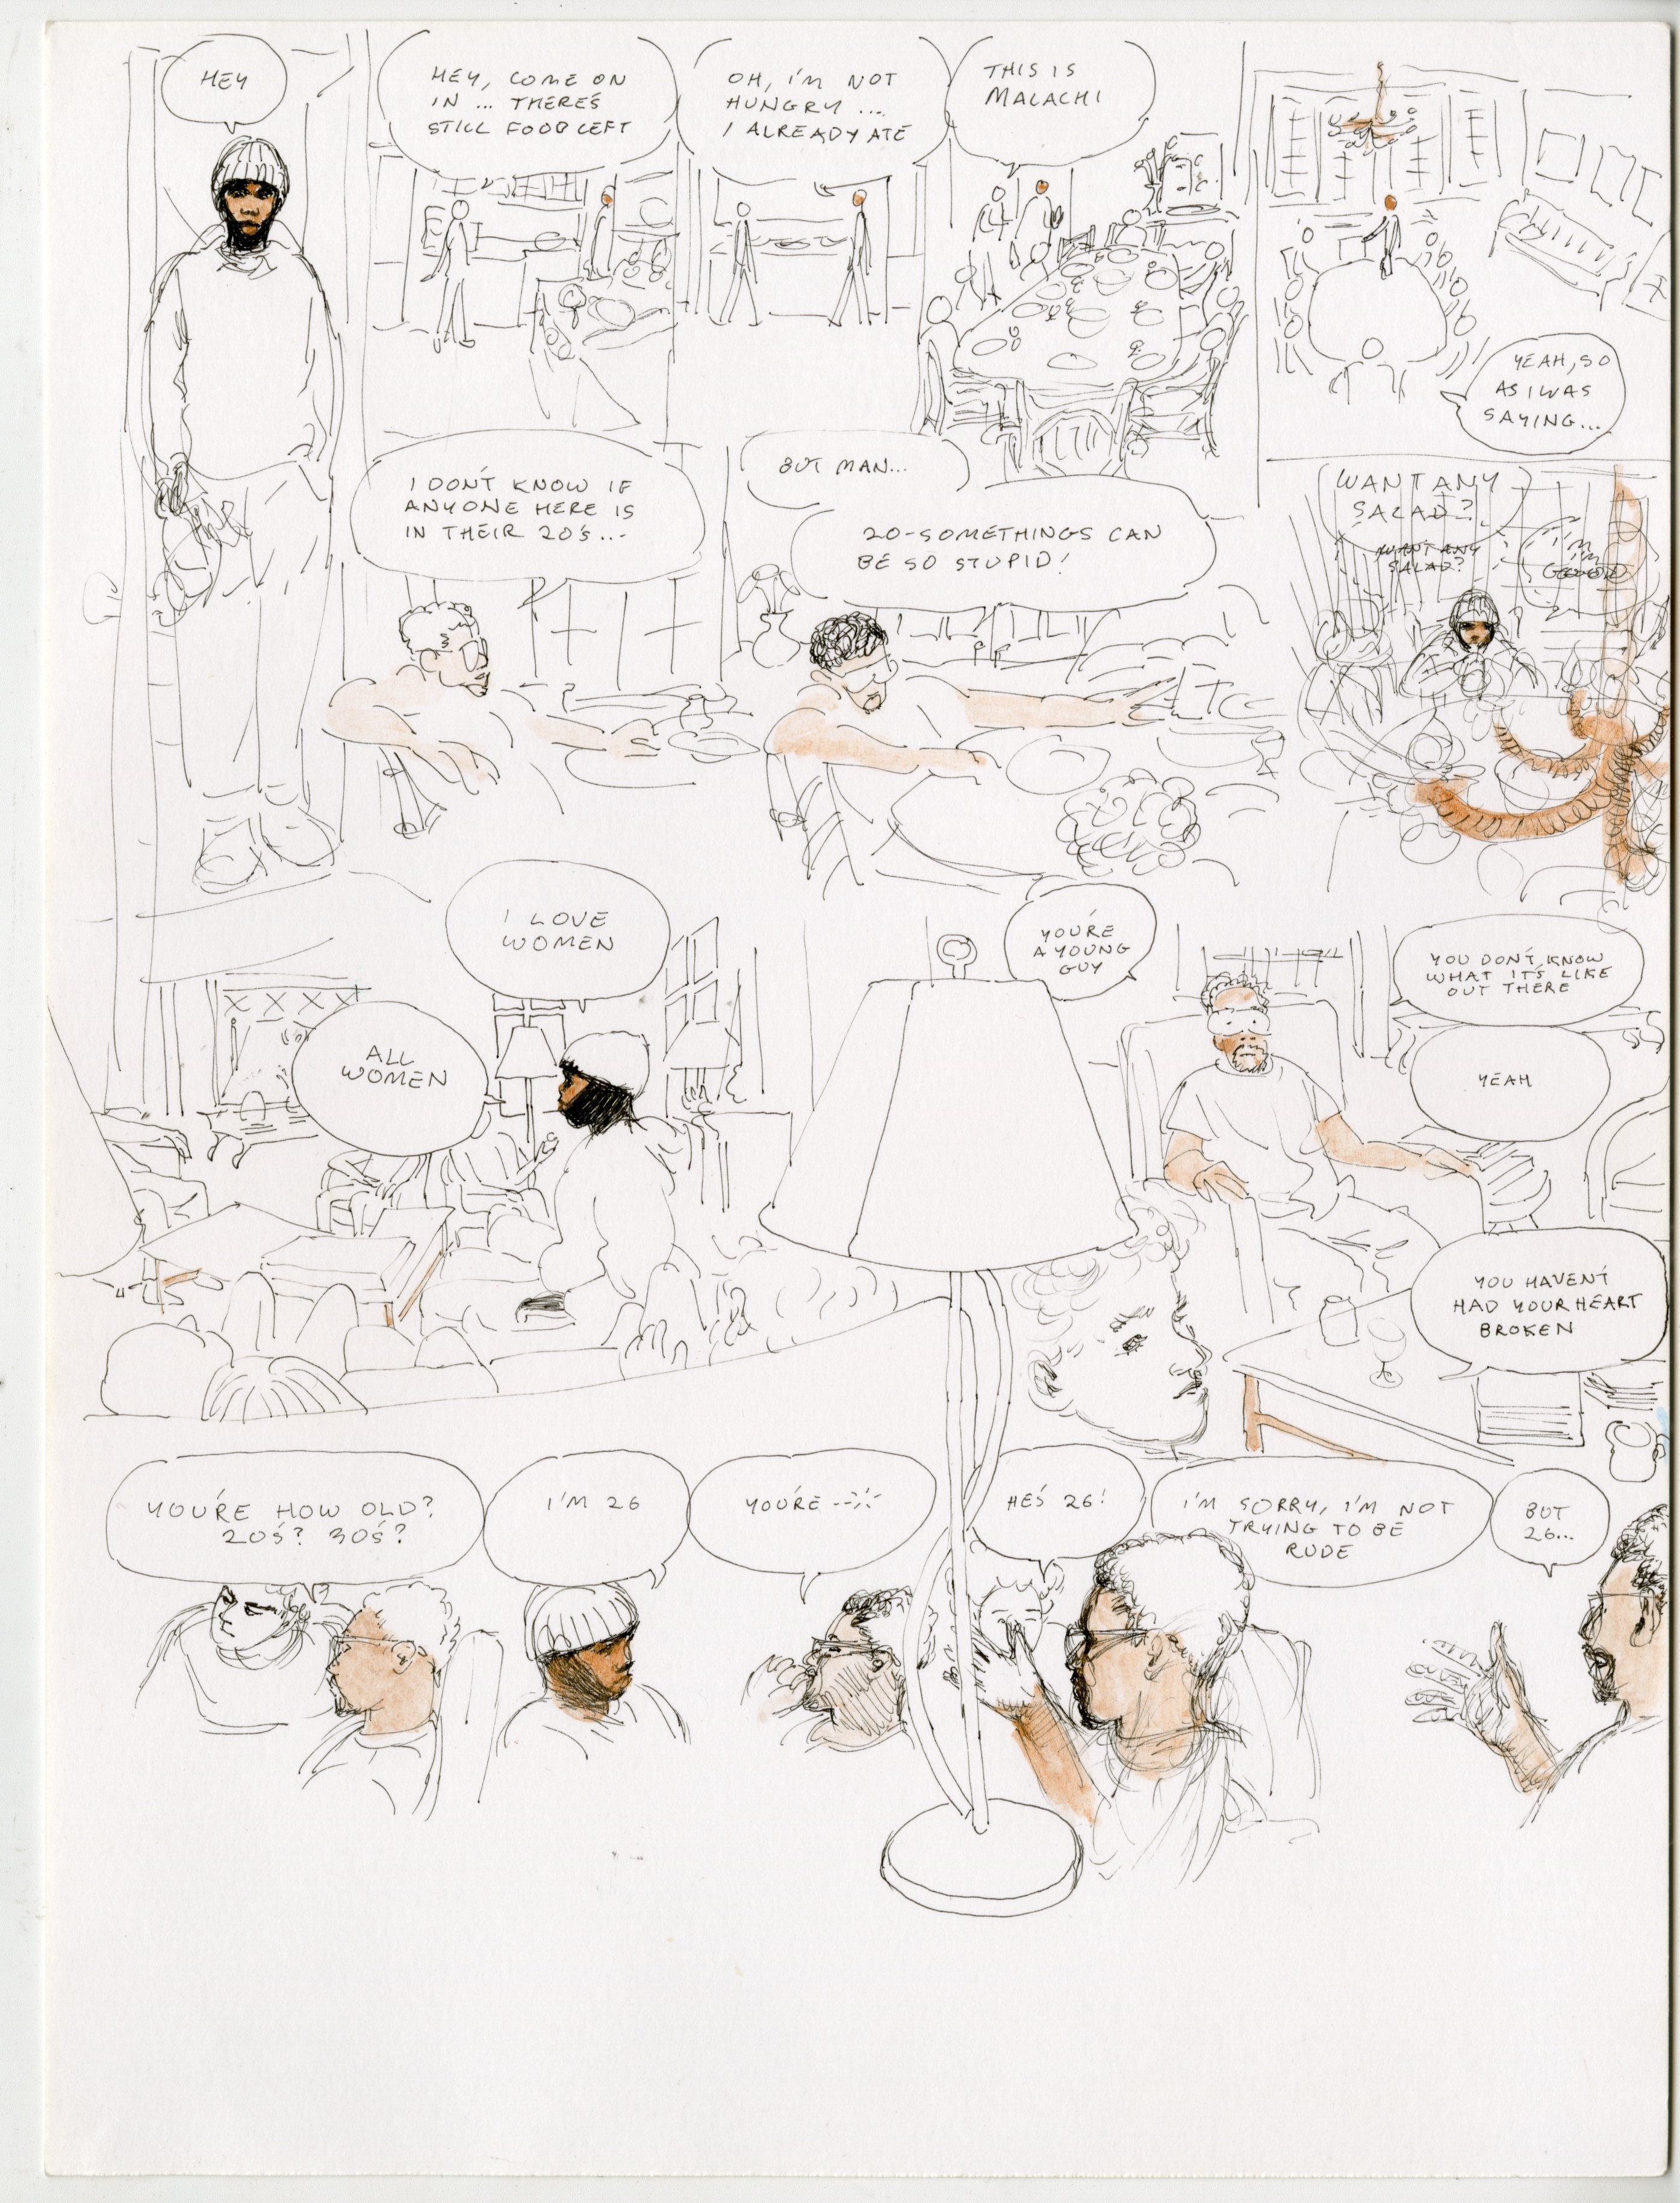 HEY
HEY, COME ON
IN ... THERE'S
STILL FOOD LEFT
OH, I'M NOT
HUNGRY ...
I ALREADY ATE
THIS IS
MALACHI
YEAH, SO
AS I WAS
SAYING...
I DON'T KNOW IF
ANYONE HERE IS
IN THEIR 20'S...
BUT MAN...
20-SOMETHINGS CAN
BE SO STUPID!
WANT ANY
SALAD?
WANT ANY
SALAD?
I'M
GOOD
I LOVE
WOMEN
ALL
WOMEN
YOU'RE
A YOUNG
GUY
YOU DON'T KNOW
WHAT IT'S LIKE
OUT THERE
YEAH
YOU HAVEN'T
HAD YOUR HEART
BROKEN
YOU'RE HOW OLD?
20'S? 30'S?
I'M 26
YOU'RE
HE'S 26!
I'M SORRY, I'M NOT
TRYING TO BE
RUDE
BUT
26...